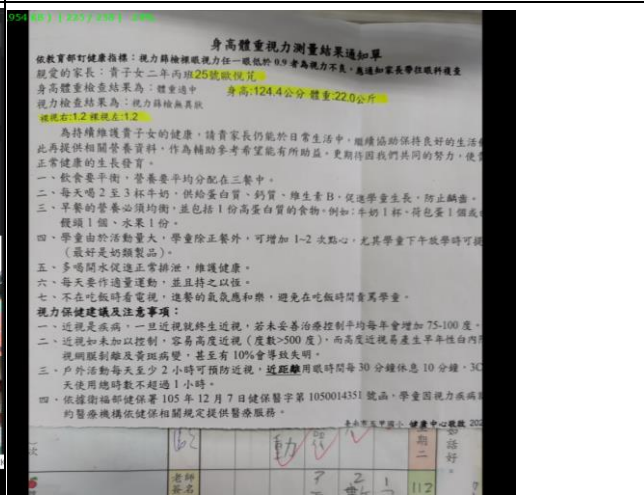 身高體重視力測量結果通知單
依教育部訂健康指標：視力篩檢裸眼視力任一眼低於 0.9 者為視力不良，應通知家長帶往眼科複查
親愛的家長：貴子女二年丙班25號歐悅芃
身高體重檢查結果為：體重適中 身高:124.4公分 體重:22.0公斤
視力檢查結果為：視力篩檢無異狀
裸視右:1.2 裸視左:1.2
為持續維護貴子女的健康，請貴家長仍能於日常生活中，繼續協助保持良好的生活
此再提供相關營養資料，作為輔助參考希望能有所助益。更期待因我們共同的努力，使
正常健康的生長發育。
一、飲食要平衡，營養要平均分配在三餐中。
二、每天喝 2 至 3 杯牛奶，供給蛋白質、鈣質、維生素 B，促進學童生長，防止齲齒。
三、早餐的營養必須均衡，並包括 1 份高蛋白質的食物，例如：牛奶 1 杯、荷包蛋 1 個或
饅頭 1 個、水果 1 份。
四、學童由於活動量大，學童除正餐外，可增加 1~2 次點心，尤其學童下午放學時可提
（最好是奶類製品）。
五、多喝開水促進正常排泄，維護健康。
六、每天要作適量運動，並且持之以恆。
七、不在吃飯時看電視，進餐的氣氛應和樂，避免在吃飯時間責罵學童。
視力保健建議及注意事項：
一、近視是疾病，一旦近視就終生近視，若未妥善治療控制平均每年會增加 75-100 度。
二、近視如未加以控制，容易高度近視（度數>500 度），而高度近視易產生早年性白內
視網膜剝離及黃斑病變，甚至有 10%會導致失明。
三、戶外活動每天至少 2 小時可預防近視，近距離用眼時間每 30 分鐘休息 10 分鐘，3C
天使用總時數不超過 1 小時。
四、依據衛福部健保署 105 年 12 月 7 日健保醫字第 1050014351 號函，學童因視力疾病
約醫療機構依健保相關規定提供醫療服務。
健康中心敬啟 202
動
期二
話好
老師簽名
112